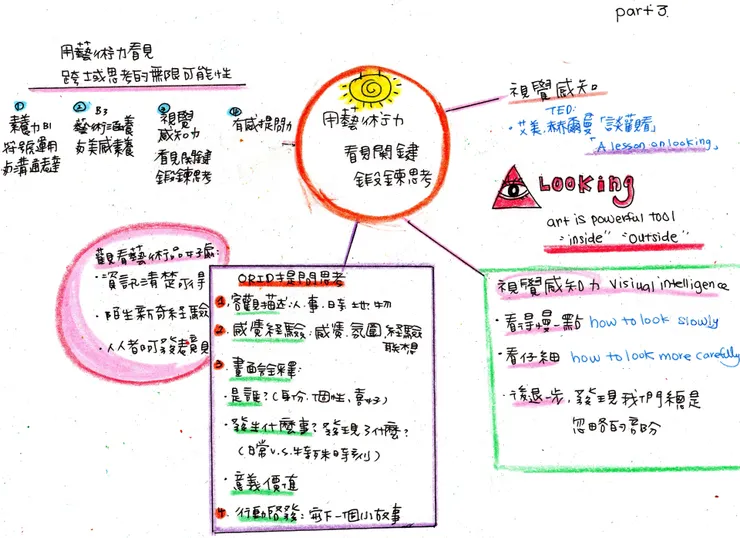 part 3.
用藝術力看見
跨域思考的無限可能性
①
素養力 B1
符號運用
與溝通表達
② B3
藝術涵養
與美感素養
③
視覺
感知力
看見關鍵
鍛鍊思考
④
有感提問力
用藝術力
看見關鍵
鍛鍊思考
視覺感知
TED:
·艾美.赫爾曼「談觀看」
「A lesson on looking」
LOOKING
art is powerful tool
"inside" "outside"
觀看藝術品好處:
·資訊清楚可得
·陌生新奇經驗
·人人者可發表意見
ORID提問思考
1. 客觀描述:人.事.時.地.物
2. 感覺經驗:感覺.氛圍.經驗
聯想
3 畫面詮釋:
·是誰?(身份.個性.喜好)
·發生什麼事?發現了什麼?
(日常v.s.特殊時刻)
·意義價值
4. 行動啓發:寫下一個小故事
視覺感知力 Visiual intelligence
·看得慢一點 how to look slowly
·看仔細 how to look more carefully
·後退一步.發現我們總是
忽略的部份